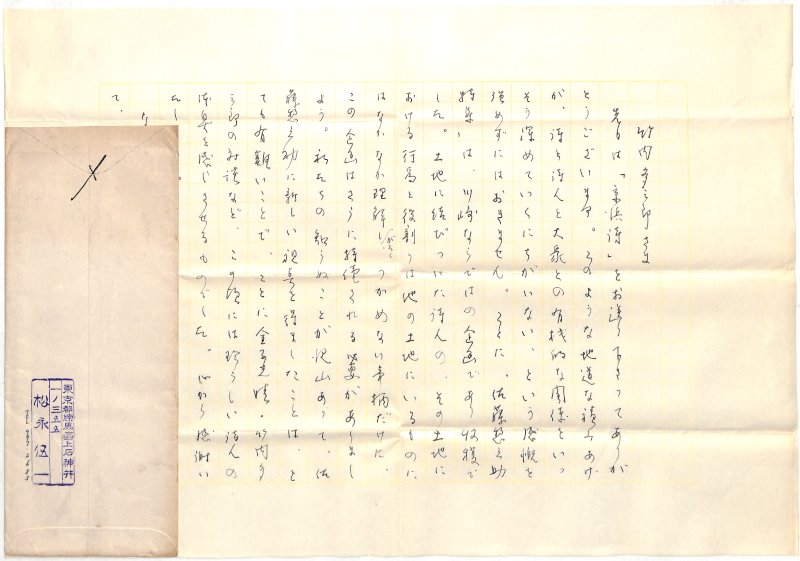 竹内多三郎さま
先日は「京浜詩」をお送り下さってありが
とうございます。このような地道な積みあげ
が、詩と詩人と大衆との有機的な関係をいっ
そう深めていくにちがいない、という感慨を
強めずにはおきません。ことに、佐藤惣之助
特集」は、川崎ならではの企画であり収穫で
した。土地に結びついた詩人の、その土地に
おける行為と役割りは他の土地にいるものに
はなかなか理解しがたくつかめない事柄だけに、
この企画はさらに持続される必要がありまし
よう。私たちの知らぬことが沢山あって、佐
藤惣之助に新しい視点を得ましたことは、と
ても有難いことで、ことに金子光晴・竹内多
三郎の対談など、この頃には珍らしい詩人の
体臭を感じさせるものでした。心から感謝い
たし
て、
東京都練馬區上石神井
一ノ三三五
松永伍一